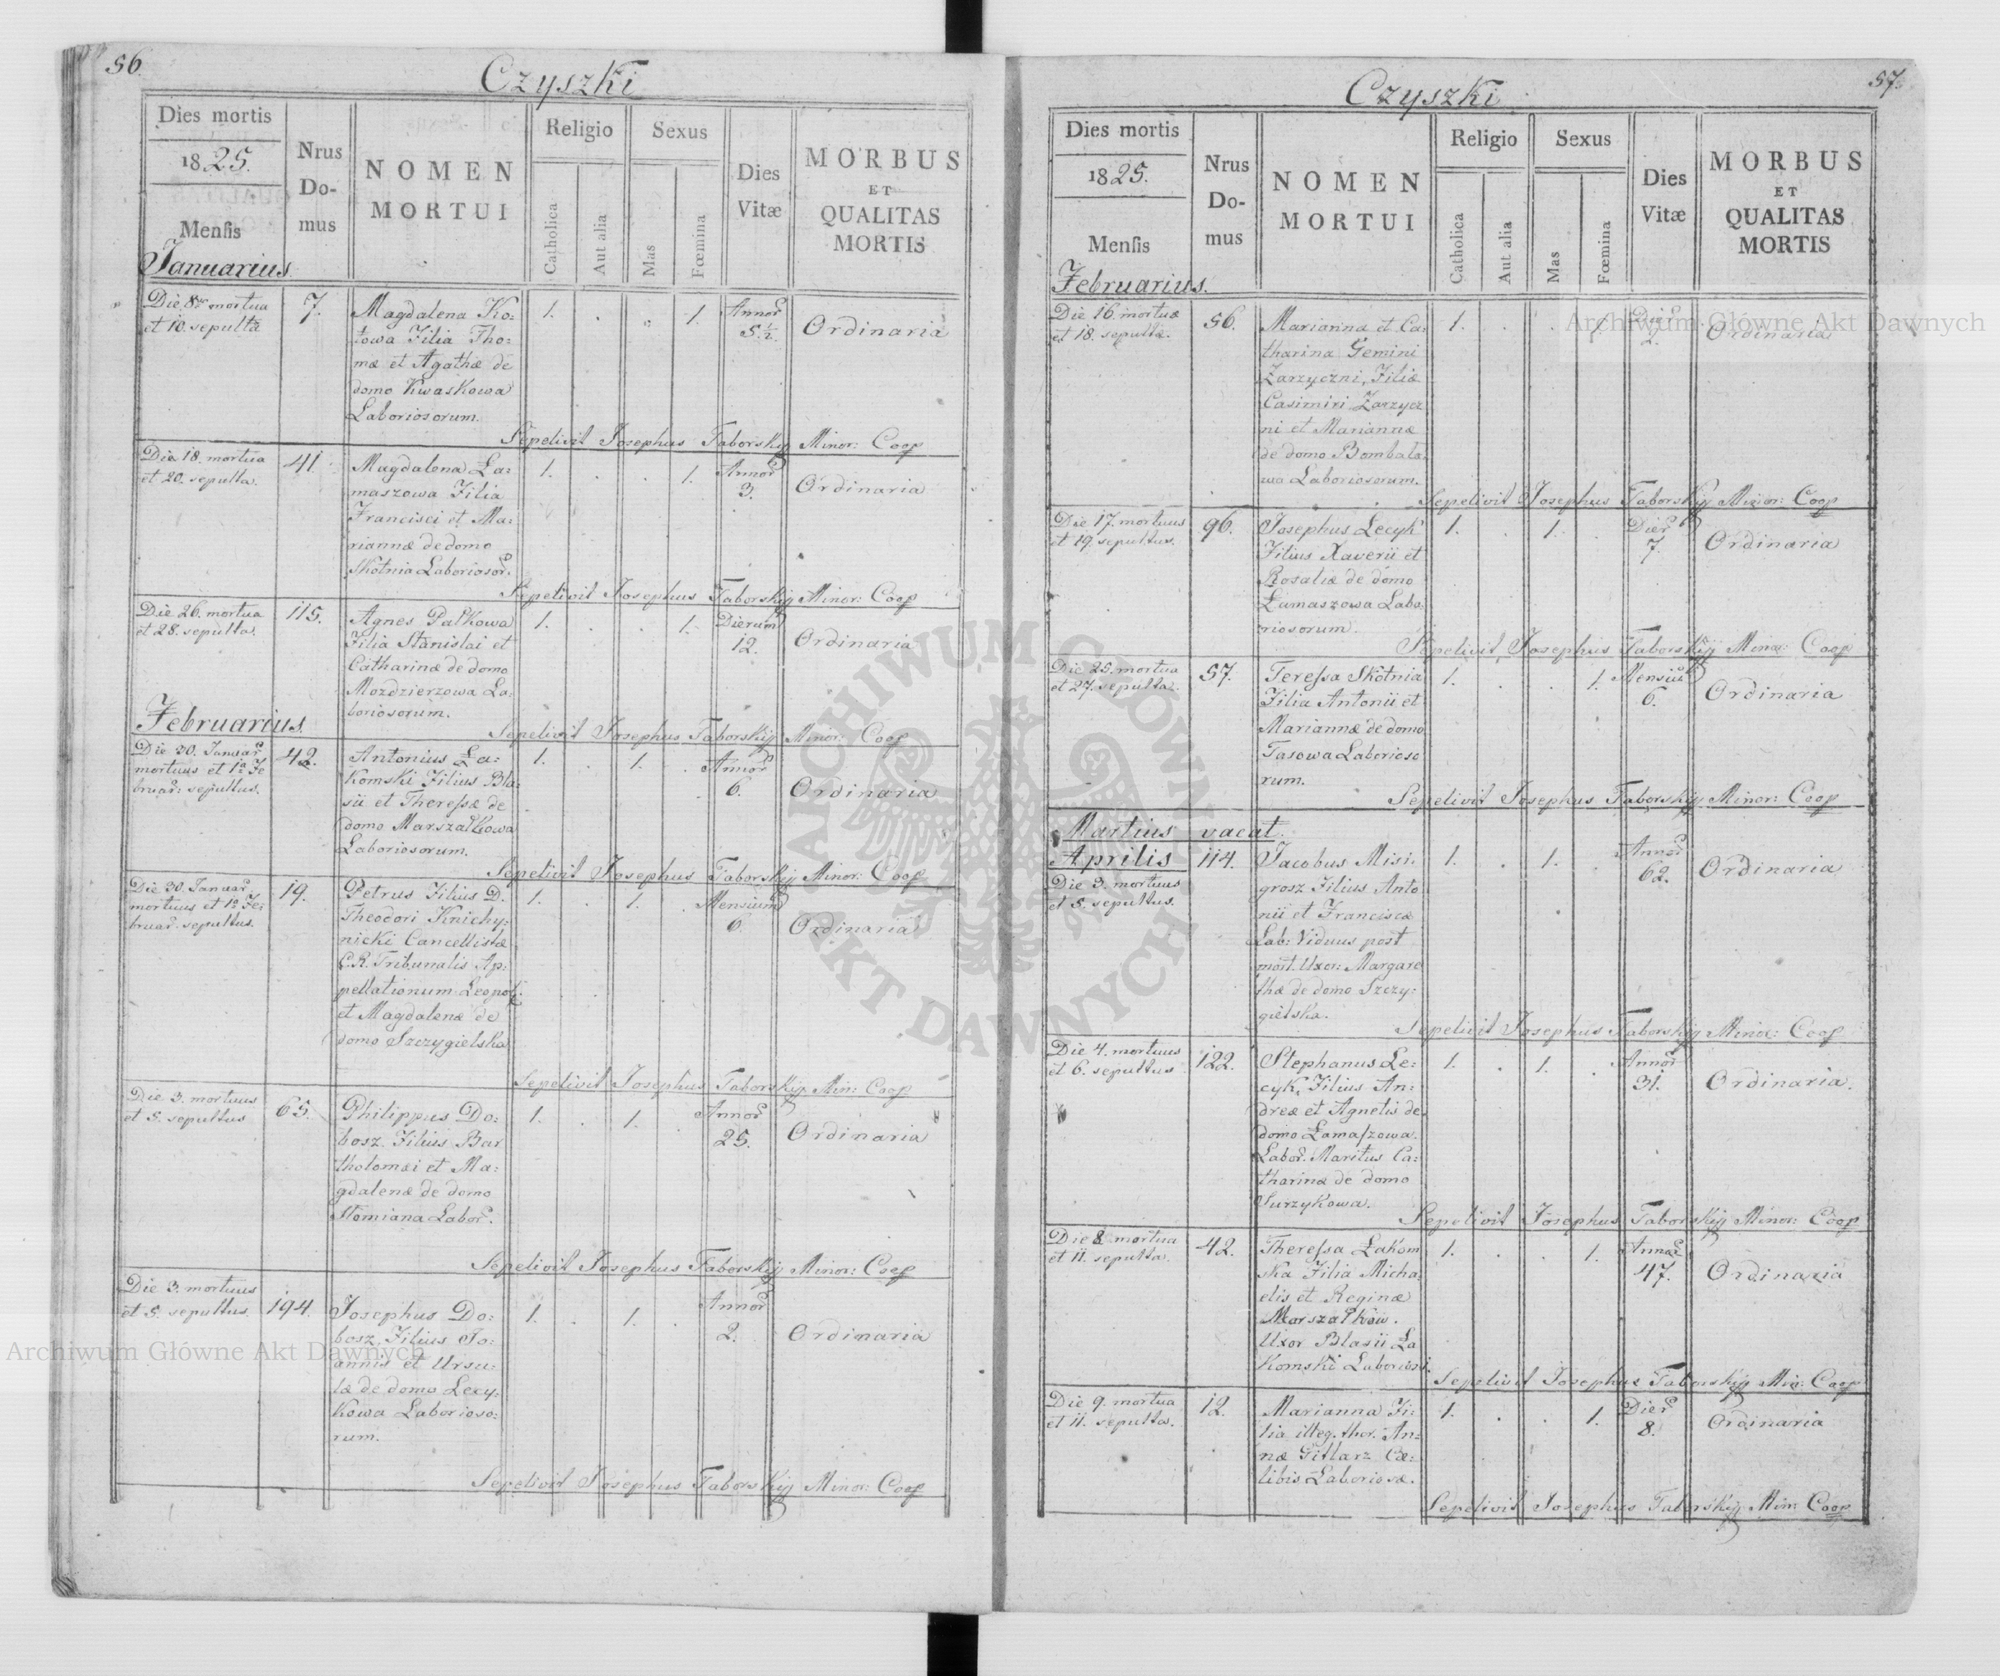 56.
Czyszki
Dies mortis
1825.
Mensis
Januarius.
Nrus Domus
NOMEN
MORTUI
Religio
Catholica
Aut alia
Sexus
Mas
Fœmina
Dies
Vitæ
MORBUS
ET
QUALITAS
MORTIS
Die 8va mortua
et 10. sepulta
7.
Magdalena Ko:
towa Filia Tho:
mæ et Agathæ de
domo Kwaskowa
Laboriosorum.
1. . . 1.
Annor
5 ½.
Ordinaria
Sepelivit Josephus Taborskij Minor: Coop
Die 18. mortua
et 20. sepulta.
41.
Magdalena Ła:
maszowa Filia
Francisci et Ma:
riannæ de domo
Skotnia Laboriosor.
1. . . 1.
Annor
3.
Ordinaria
Sepelivit Josephus Taborskij Minor: Coop
Die 26. mortua
et 28. sepulta.
115.
Agnes Pałkowa
Filia Stanislai et
Catharinæ de domo
Mozdzierzowa La:
boriosorum.
1. . . 1.
Dierum
12.
Ordinaria
Sepelivit Josephus Taborskij Minor: Coop
Februarius.
Die 30. Januar
mortuus et 1a Fe
bruar: sepultus.
42.
Antonius Ła:
komski Filius Bla:
sii et Theressæ de
domo Marszałkowa
Laboriosorum.
1. . 1. .
Annor
6.
Ordinaria
Sepelivit Josephus Taborskij Minor: Coop
Die 30. Januar
mortuus et 1a Fe:
bruar. sepultus.
19.
Petrus Filius D.
Theodori Knichy:
nicki Cancellistæ
C.R. Tribunalis Ap:
pellationum Leopol:
et Magdalenæ de
domo Szczygielska
1. . 1. .
Mensium
6.
Ordinaria
Sepelivit Josephus Taborskij Min: Coop
Die 3. mortuus
et 5. sepultus
65.
Philippus Do:
bosz. Filius Bar
tholomæi et Ma:
gdalenæ de domo
Słomiana Labor.
1. . 1. .
Annor
25.
Ordinaria
Sepelivit Josephus Taborskij Minor: Coop
Die 3. mortuus
et 5. sepultus.
194.
Josephus Do:
bosz, Filius Jo:
annis et Ursu:
læ de domo Lecy:
kowa Laborioso:
rum.
1. . 1. .
Annor
2.
Ordinaria
Sepelivit Josephus Taborskij Minor: Coop
57.
Czyszki
Dies mortis
1825.
Mensis
Februarius.
Nrus Domus
NOMEN
MORTUI
Religio
Catholica
Aut alia
Sexus
Mas
Fœmina
Dies
Vitæ
MORBUS
ET
QUALITAS
MORTIS
Die 16. mortuæ
et 18. sepultæ.
56.
Marianna et Ca:
tharina Gemini
Zarzyczni, Filiæ
Casimiri Zarzycz
ni et Mariannæ
de domo Bombala:
wa Laboriosorum.
1. . .
Dier
2.
Ordinaria
Sepelivit Josephus Taborskij Minor: Coop
Die 17. mortuus
et 19. sepultus.
96.
Josephus Lecyk
Filius Xaverii et
Rosaliæ de domo
Łamaszowa Labo:
riosorum.
1. . 1. .
Dier
7.
Ordinaria
Sepelivit Josephus Taborskij Minor: Coop
Die 25. mortua
et 27. sepulta.
57.
Teressa Skotnia
Filia Antonii et
Mariannæ de domo
Tasowa Laborioso
rum.
1. . . 1.
Mensiu
6.
Ordinaria
Sepelivit Josephus Taborskij Minor: Coop
Martius vacat.
Aprilis
Die 3. mortuus
et 5. sepultus.
114.
Jacobus Misi:
grosz Filius Anto
nii et Franciscæ
Lab: Viduus post
mort. Uxor: Margare
thæ de domo Szczy:
gielska.
1. . 1. .
Annor
62.
Ordinaria
Sepelivit Josephus Taborskij Minor: Coop
Die 4. mortuus
et 6. sepultus
122.
Stephanus Le:
cyk, Filius An:
dreæ et Agnetis de
domo Łamaszowa.
Labor. Maritus Ca:
tharinæ de domo
Surzykowa.
1. . 1. .
Annor
31.
Ordinaria.
Sepelivit Josephus Taborskij Minor: Coop
Die 8. mortua
et 11. sepulta.
42.
Theressa Łakom
ska Filia Micha
elis et Reginæ
Marszałków.
Uxor Blasii Ła
komski Laboriosi.
1. . . 1.
Annor
47.
Ordinaria
Sepelivit Josephus Taborskij Min: Coop
Die 9. mortua
et 11. sepulta.
12.
Marianna Fi:
lia illeg. thor. An:
næ Gitlarz Cæ:
libis Laboriosæ.
1. . . 1.
Dier
8.
Ordinaria
Sepelivit Josephus Taborskij Min: Coop
Archiwum Główne Akt Dawnych
Archiwum Główne Akt Dawnych
ARCHIWUM GŁÓWNE AKT DAWNYCH